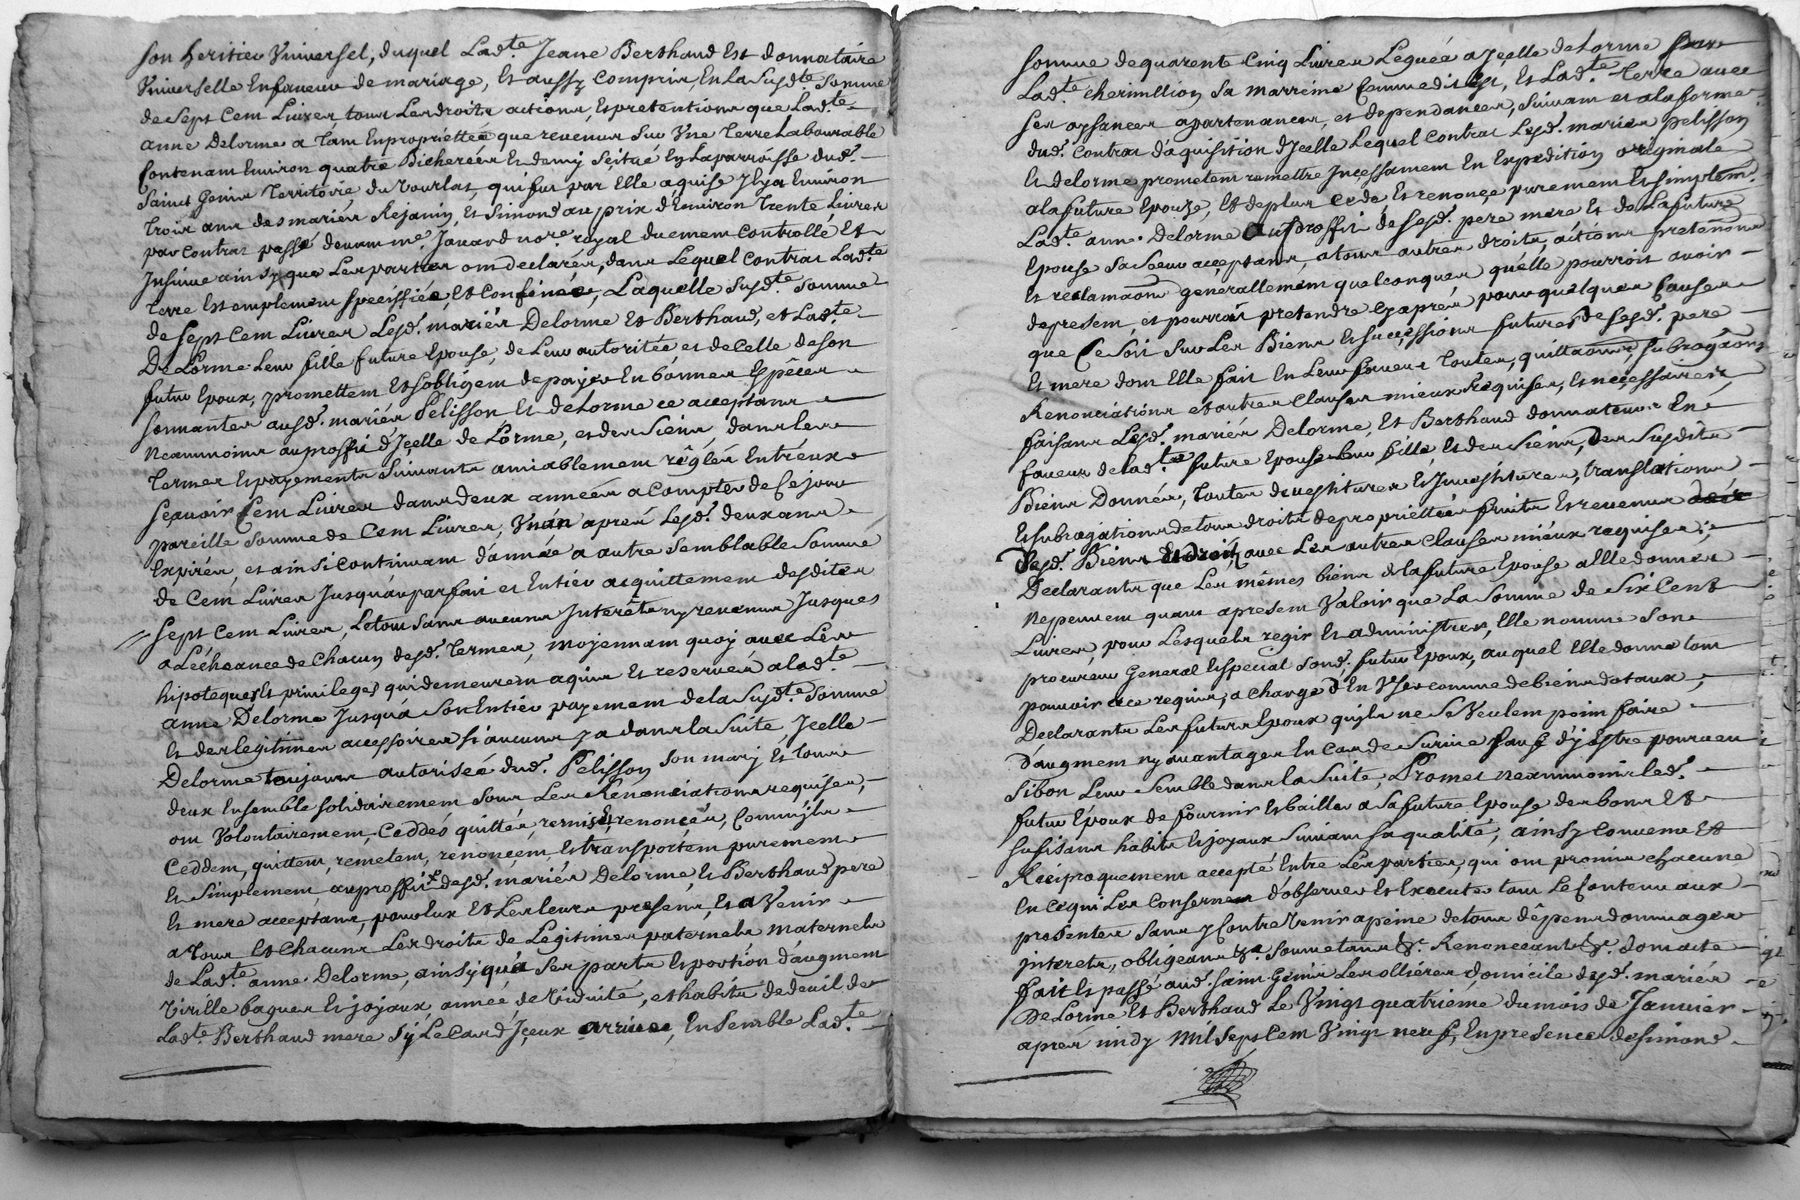 son heritier Universel, duquel Lad.te Jeane Berthaud Est donnataire
Universelle En faveur de mariage, Et aussy Comprin, En La Susd.te Somme
de Sept Cent Livres tous Les droits actions, Et pretentions que Lad.te
anne Delorme a Tant En propriettée que revenus Sur Une Terre Labourable
Contenant Environ quatre Bicherées Et demy Scitué En La parroisse dud.
Saint Genis Territoire du Tourlas, qui fut par Elle aquise Il y a Environ
trois ans des mariés Rejanin, Et Simond au prix d'Environ Trente Livres
par Contrat passé devant me. Janard no.re royal duement Controllé Et
Insinué ainsy que Les parties ont declarés, dans Lequel Contrat Lad.te
Terre Est emplement Specifiée, Et Confinée, Laquelle Susd.te Somme
de Sept Cent Livres Lesd. mariés Delorme Et Berthaud, et Lad.te
De Lorme Leur fille future Epouse, de Leur autoritée et de Celle de son
futur Epoux, promettent Et Sobligent de payer En bonnes Espèces
Sonnantes ausd. mariés Pelisson Et de Lorme ce acceptans
Neammoins au proffit d'Icelle de Lorme, et des Siens dans les
Termes Et payements Suivants amiablement réglés Entreux
Scavoir Cent Livres dans deux années a Compter de Ce jour
pareille Somme de Cent Livres, Un an aprés Lesd. deux ans
Expirés, et ainsi Continuant d'année a autre Semblable Somme
de Cent Livres Jusqu'au parfait et Entier acquittement desdites
Sept Cent Livres, Le tout Sans aucuns Interêts ny revenus Jusques
a L'échéance de Chacun desd. Termes, moyennant quoy avec Les
hipoteques Et privileges qui demeurent aquis Et reservés a Lad.te
anne Delorme Jusqu'a Son Entier payement de la Susd.te Somme
Et des legitimes accessoires Si aucuns y a dans la Suite Icelle
Delorme toujours autorisée dud. Pelisson Son mary Et tous
deux Ensemble Solidairement Sous Les Renonciations requises,
ont Volontairement, Ceddés quittés, remis, Et renoncés, Comm'ils
Ceddent, quittent, remetent, renoncent, Et transportent purement
Et Simplement, au proffit desd. mariés Delorme Et Berthaud pere
Et mere acceptans, pour Eux Et Les leurs presens, Et a Venir
a tous Et Chacuns Les droits de Legitimes paternels maternels
de Lad.te anne Delorme, ainsy qu'a Ses parts Et portion d'augment
Virille bagues Et joyaux, année de Viduité, et habits de deuil de
Lad.te Berthaud mere S'y Le Cas d'Iceux arrivee, Ensemble Lad.te
Somme de quarente Cinq Livres Leguée a Icelle de Lorme par
Lad.te chermettion Sa marreine Comme dit Est, Et Lad.te Terre avec
Ses aysances apartenances, et dependances, Suivant et a la forme
dud. Contrat d'aquisition d'Icelle Lequel Contrat Lesd. mariés pelisson
Et delorme promettent remettre Incessament En Expedition originale
a la future Epouze, Et de plus cede Et renonce purement Et Simplem.t
Lad.te anne Delorme au proffit de Sesd. pere mere Et de La future
Epouse Sa Soeur acceptans, a tous autres droits, actions pretentions
Et reclamaõns generallement quelconques qu'elle pourroit avoir
de present, et pourroit pretendre Cy aprés pour quelques Causes
que Ce Soit Sur Les Biens Et Successions futures de Sesd. pere
Et mere dont Elle fait En Leur faveur Toutes, quittances, Subrogãons
Renonciations et autres Clauses mieux requises, Et necessaires,
faisans Lesd. mariés Delorme, Et Berthaud donnateurs En
faveur de lad.te future Epouse leur fille, Et des Siens, des Susdits
Biens Donnés, Toutes devestitures Et Investitures, translations
Et Subrogations de tous droits de propriettée fruits Et revenus
Desd. Biens avec Les autres Clauses mieux requises,
Declarants que Les mêmes biens de la future Epouse a Elle donnés
ne peuvent quant apresent Valoir que La Somme de Six Cent
Livres, pour Lesquels regir Et administrer, Elle nomme Son
procureur General Et Special Sond. futur Epoux, auquel Elle donne tout
pouvoir ce requis, a Charge d'En User comme de biens dotaux,
Declarants Les futurs Epoux qu'ils ne Se Veulent point faire
d'augment ny avantages En Cas de Survie Sauf d'y Estre pourveu
Si bon Leur Semble dans la Suite, Promet neammoins led.
futur Epoux de fournir Et bailler a Sa future Epouse des bons Et
Sufisans habits Et joyaux Suivant Sa qualité, ainsy Convenu Et
Reciproquement accepté Entre Les parties, qui ont promis chacune
En Ce qui Les Conserne d'observer Et Executer tout Le Contenu aux
presentes Sans y Contrevenir a peine de tous dêpens dommages
Interets, obligeans &a. Soumettans &a. Renonceants &a. dont acte
fait Et passé aud. Saint Genis Les ollieres, domicile desd. mariés
De Lorme Et Berthaud Le Vingt quatrieme du mois de Janvier
apres midy Mil Sept Cent Vingt neuf, En presence de Simond